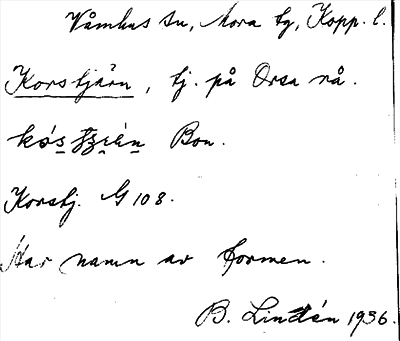 Våmhus sn, Mora tg, Kopp. l.
Korstjärn, tj. på Orsa rå.
Bon.
Korstj. G 108.
Har namn av formen.
B. Lindén 1936.